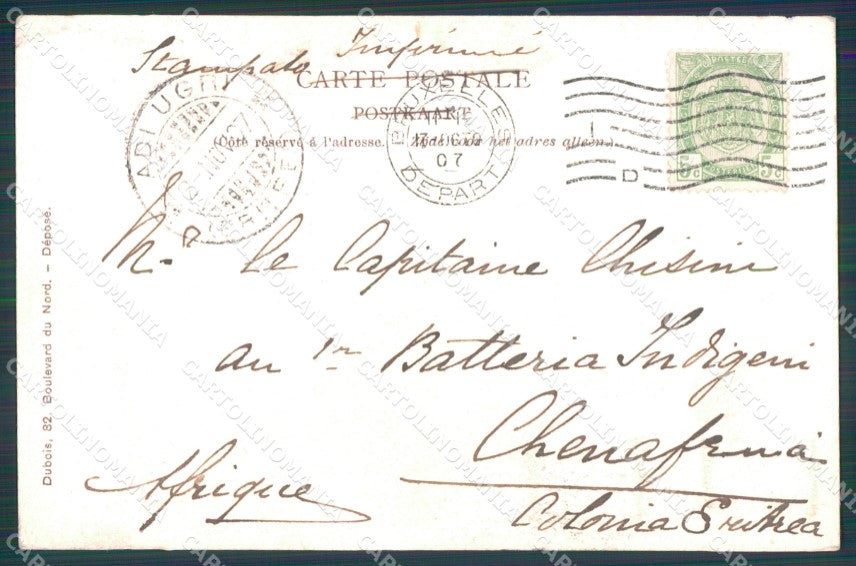 Stampato Imprimé
CARTE POSTALE
POSTKAART
(Côté réservé à l'adresse.
BRUXELLES
07
DEPART
ADI UGRI
ERITREA
1
D
POSTES
5c 5c
Mr Le Capitaine Chisini
au 1re Batteria Indigeni
Chenafena
Afrique
Colonia Eritrea
Dubois, 82, Boulevard du Nord. — Déposé.
CARTOLINOMANIA